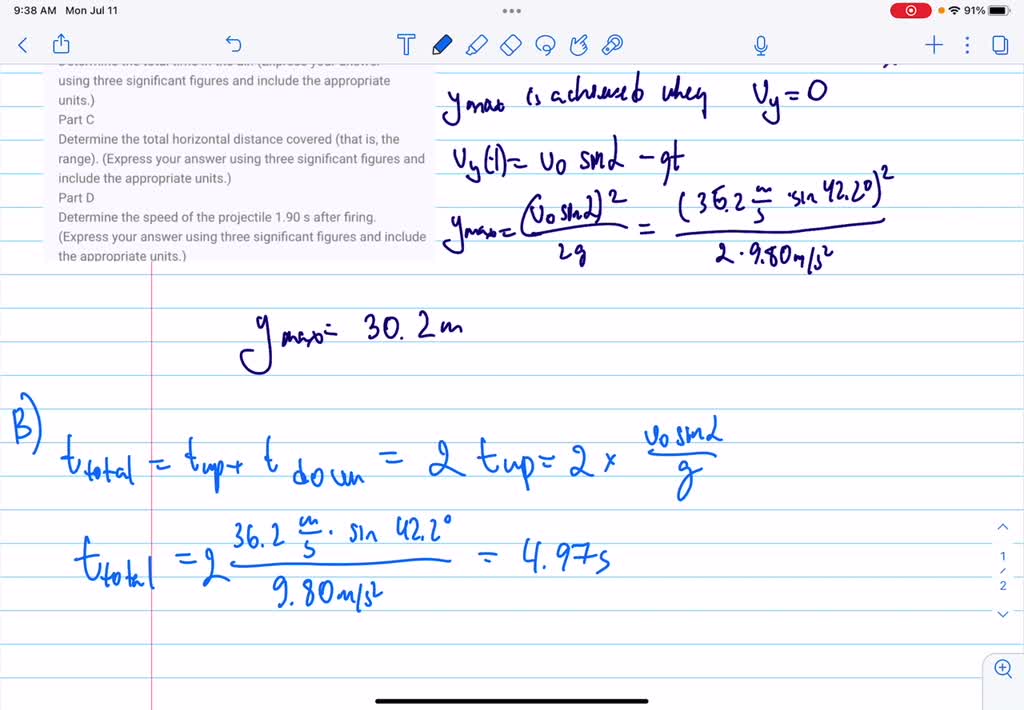 9:38 AM Mon Jul 11
91%
using three significant figures and include the appropriate
units.)
Part C
Determine the total horizontal distance covered (that is, the
range). (Express your answer using three significant figures and
include the appropriate units.)
Part D
Determine the speed of the projectile 1.90 s after firing.
(Express your answer using three significant figures and include
the appropriate units.)
y max is achieved when Vy = 0
Vy(t) = v0 sin α - gt
y max = (v0 sin α)² / 2g = (36.2 m/s · sin 42.2°)² / 2 · 9.80 m/s²
y max = 30.2 m
B)
t total = t up + t down = 2 t up = 2 × v0 sin α / g
t total = 2 36.2 m/s · sin 42.2° / 9.80 m/s² = 4.97 s
1
/
2